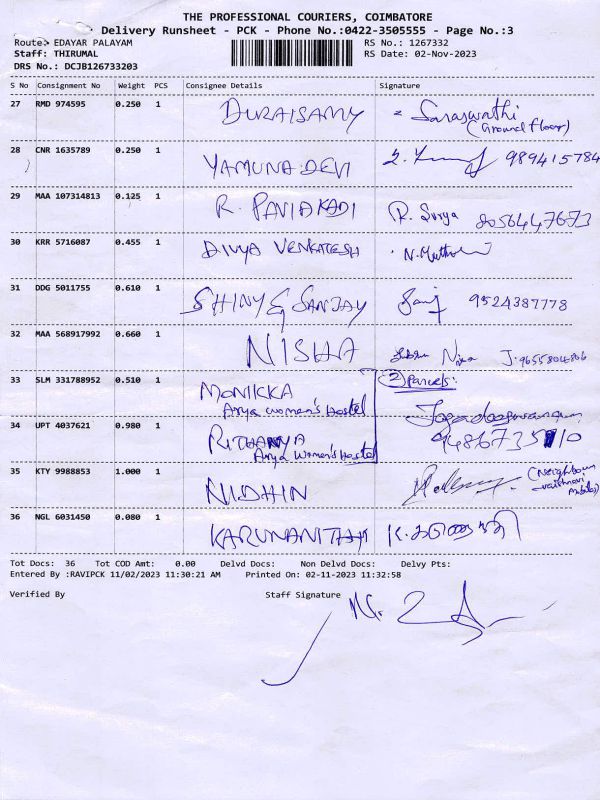 THE PROFESSIONAL COURIERS, COIMBATORE
Delivery Runsheet - PCK - Phone No.:0422-3505555 - Page No.:3
Route: EDAYAR PALAYAM RS No.: 1267332
Staff: THIRUMAL RS Date: 02-Nov-2023
DRS No.: DCJB126733203
S No Consignment No Weight PCS Consignee Details Signature
27 RMD 974595 0.250 1 DURAISAMY - Saraswathi
(Ground floor)
28 CNR 1635789 0.250 1 YAMUNA DEVI 989415784
29 MAA 107314813 0.125 1 R. R. Surya 8056447673
30 KRR 5716087 0.455 1 DIVYA VENKATESH
31 DDG 5011755 0.610 1 SHINY & SANJAY 9524387778
32 MAA 568917992 0.660 1 NISHA Nisa J. 9655804866
33 SLM 331788952 0.510 1 MONIKKA (2) Parcels:
Arya women's Hostel
34 UPT 4037621 0.980 1 RITHANYA
Arya Women's Hostel
35 KTY 9988853 1.000 1 NIDHIN (Neighbour
vaishnavi
36 NGL 6031450 0.080 1 KARUNANITHI K. கருணாநிதி
Tot Docs: 36 Tot COD Amt: 0.00 Delvd Docs: Non Delvd Docs: Delvy Pts:
Entered By :RAVIPCK 11/02/2023 11:30:21 AM Printed On: 02-11-2023 11:32:58
Verified By Staff Signature